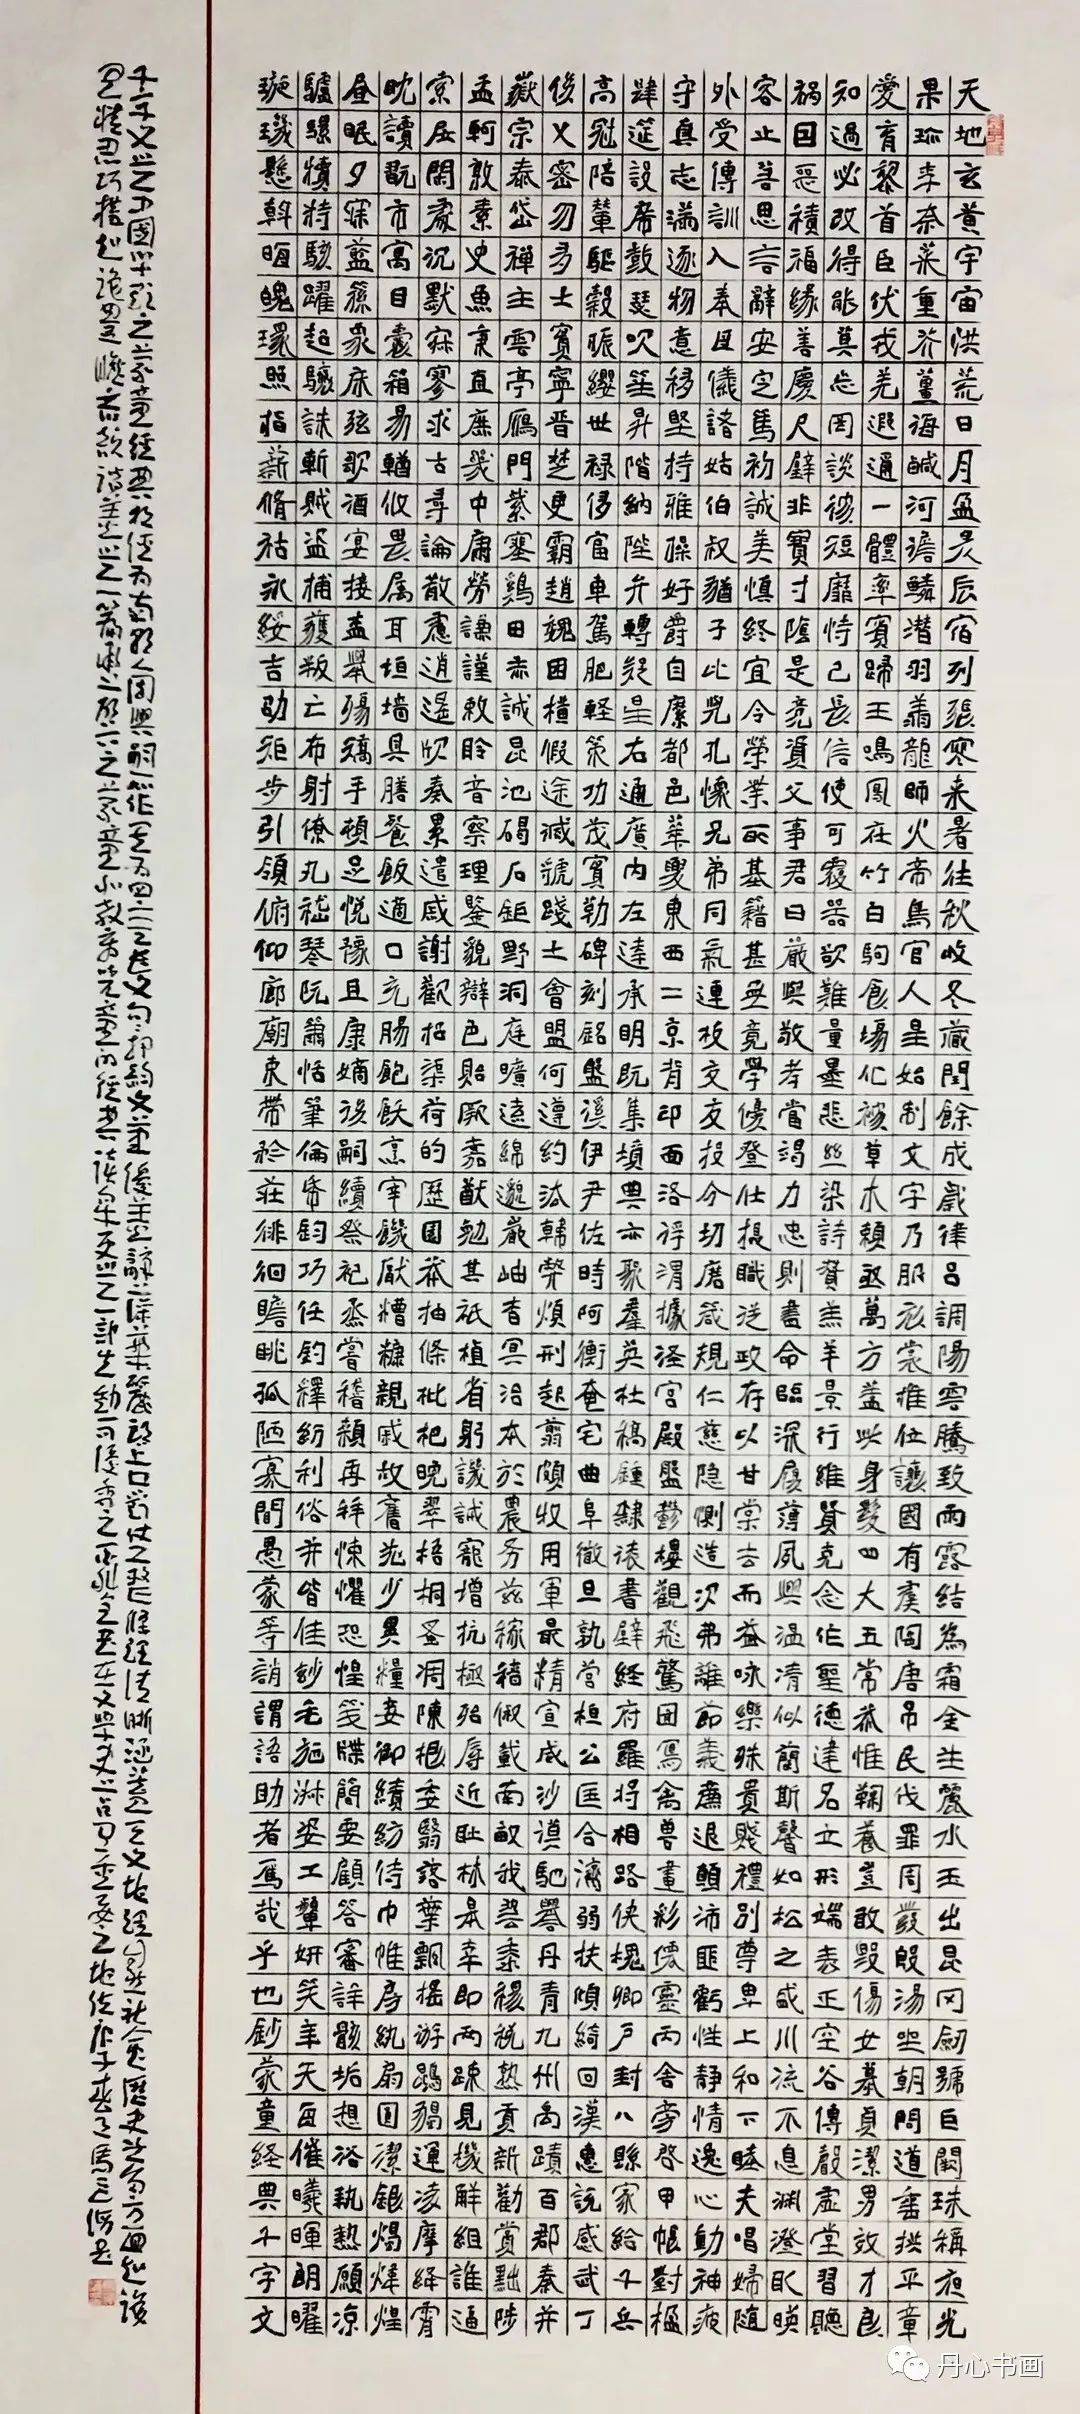 天地玄黄宇宙洪荒日月盈昃辰宿列張寒来暑往秋收冬藏閏餘成歲律吕調陽雲騰致雨露結為霜金生麗水玉出昆冈劍號巨闕珠稱夜光
果珍李奈菜重芥薑海鹹河澹鱗潜羽翔龍師火帝鳥官人皇始制文字乃服衣裳推位讓國有虞陶唐吊民伐罪周發殷湯坐朝問道垂拱平章
愛育黎首臣伏戎羌遐邇一體率賓歸王鳴鳳在竹白駒食場化被草木賴及萬方蓋此身髮四大五常恭惟鞠養豈敢毁傷女慕貞潔男效才良
知過必改得能莫忘罔談彼短靡恃己長信使可覆器欲難量墨悲絲染詩贊羔羊景行維賢克念作聖德建名立形端表正空谷傳聲虚堂習聽
禍因惡積福緣善慶尺璧非寶寸陰是竞資父事君曰嚴與敬孝當竭力忠則盡命臨深履薄夙興温清似蘭斯馨如松之盛川流不息渊澄取映
容止若思言辭安定篤初誠美慎終宜令榮業所基籍甚無竟學優登仕攝職従政存以甘棠去而益咏樂殊貴賤禮别尊卑上和下睦夫唱婦随
外受傅訓入奉母儀諸姑伯叔猶子比兒孔懷兄弟同氣連枝交友投分切磨箴規仁慈隐惻造次弗離節義廉退顛沛匪虧性静情逸心動神疲
守真志滿逐物意移堅持雅操好爵自縻都邑華夏東西二京背邙面洛浮渭據泾宫殿盤鬱樓觀飛驚圖寫禽獸畫彩仙靈丙舍旁啓甲帳對楹
肆筵設席鼓瑟吹笙昇階納陛弁轉疑星右通廣内左達承明既集墳典亦聚羣英杜稿鍾隸漆書壁經府羅將相路俠槐卿户封八縣家給千兵
高冠陪輦驅轂振纓世禄侈富車駕肥軽策功茂實勒碑刻銘磻溪伊尹佐時阿衡奄宅曲阜微旦孰營桓公匡合濟弱扶傾綺回漢惠説感武丁
俊乂密勿多士實寧晉楚更霸趙魏困横假途滅虢踐土會盟何遵約法韓弊煩刑起翦頗牧用軍最精宣威沙漠馳譽丹青九州禹蹟百郡秦并
嶽宗泰岱禪主雲亭雁門紫塞鷄田赤誠昆池碣石鉅野洞庭曠遠綿邈巖岫杳冥治本於農务兹稼穡俶載南畝我藝黍稷税熟貢新勸賞黜陟
孟軻敦素史魚秉直庶幾中庸勞謙謹敕聆音察理鑒貌辯色貽厥嘉猷勉其祗植省躬譏誡寵增抗極殆辱近恥林皋幸即兩疏見機解組誰逼
索居閑處沉默寂寥求古尋論散慮逍遥欣奏累遣慼謝歡招渠荷的歷園莽抽條枇杷晚翠梧桐蚤凋陳根委翳落葉飄摇游鵾獨運凌摩絳霄
耽讀翫市寓目囊箱易輶攸畏属耳垣墙具膳餐飯適口充腸飽飫烹宰饑厭糟糠親戚故舊老少異糧妾御績紡侍巾帷房紈扇圓潔銀燭煒煌
昼眠夕寐藍筍象床弦歌酒宴接盃舉殤矯手頓足悦豫且康嫡後嗣續祭祀蒸嘗稽顙再拜悚懼恐惶箋牒簡要顧答審詳骸垢想浴執熱願凉
驢騾犢特駭躍超驤誅斬賊盗捕獲叛亡布射僚丸嵇琴阮嘯恬筆倫紙鈞巧任釣釋紛利俗并皆佳妙毛施淑姿工顰妍笑年矢每催曦暉朗曜
璇璣懸斡晦魄環照指薪修祜永綏吉劭矩步引領俯仰廊廟束帶矜莊徘徊瞻眺孤陋寡聞愚蒙等誚謂語助者焉哉乎也鈔蒙童經典千字文
千字文
丹心书画